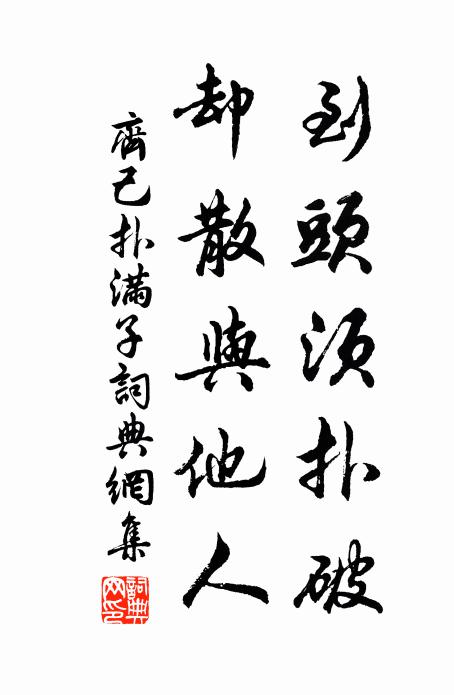 到頭須扑破
却散與他人
齊己扑滿子詞典網集
詞典網印